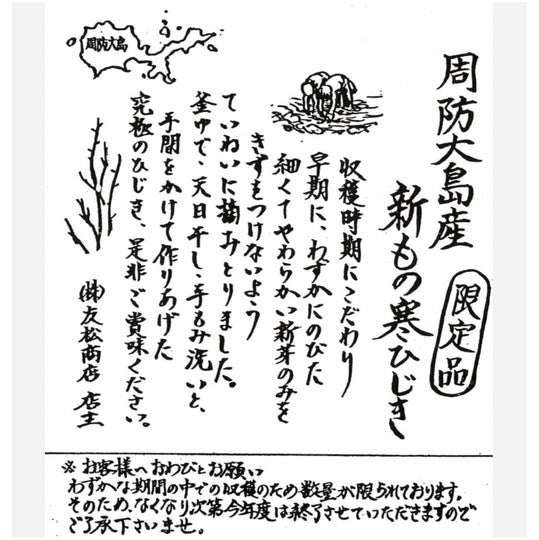 周防大島産
新もの寒ひじき
限定品
収穫時期にこだわり
早期に、わずかにのびた
細くてやわらかい新芽のみを
きずをつけないよう
ていねいに摘みとりました。
釜ゆで、天日干し、手もみ洗いと、
手間をかけて作りあげた
究極のひじき、是非ご賞味ください。
㈱友松商店 店主
周防大島
※お客様へおわびとお願い
わずかな期間の中での収穫のため数量が限られております。
そのため、なくなり次第今年度は終了させていただきますので
ご了承下さいませ。